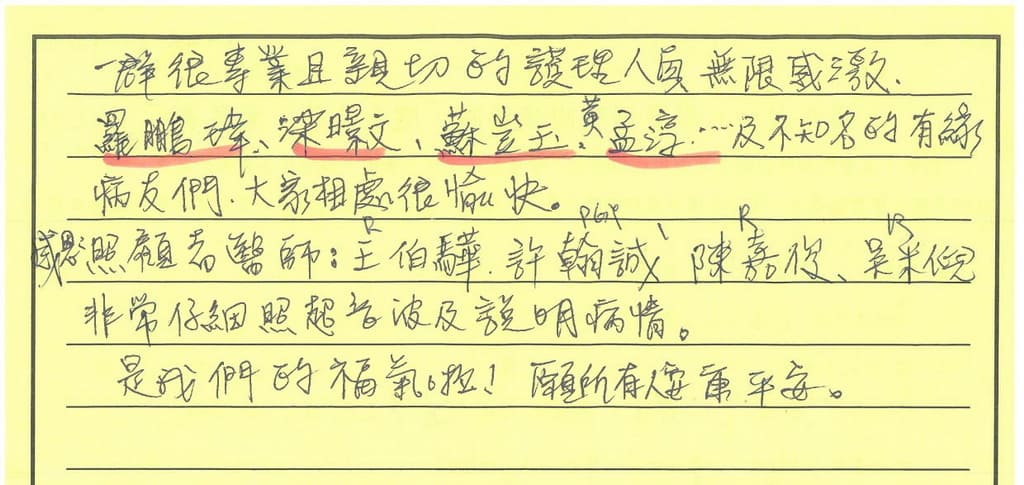 一群很專業且親切的護理人員無限感激.
羅鵬瑋、梁暻文、蘇豈玉、黃孟淳…及不知名的有緣
病友們.大家相處很愉快。
R PGY R R
感恩照顧者醫師:王伯驊.許翰誠、陳嘉俊、吳米倪
非常仔細照超音波及說明病情。
是我們的福氣啦!願所有人 平安。